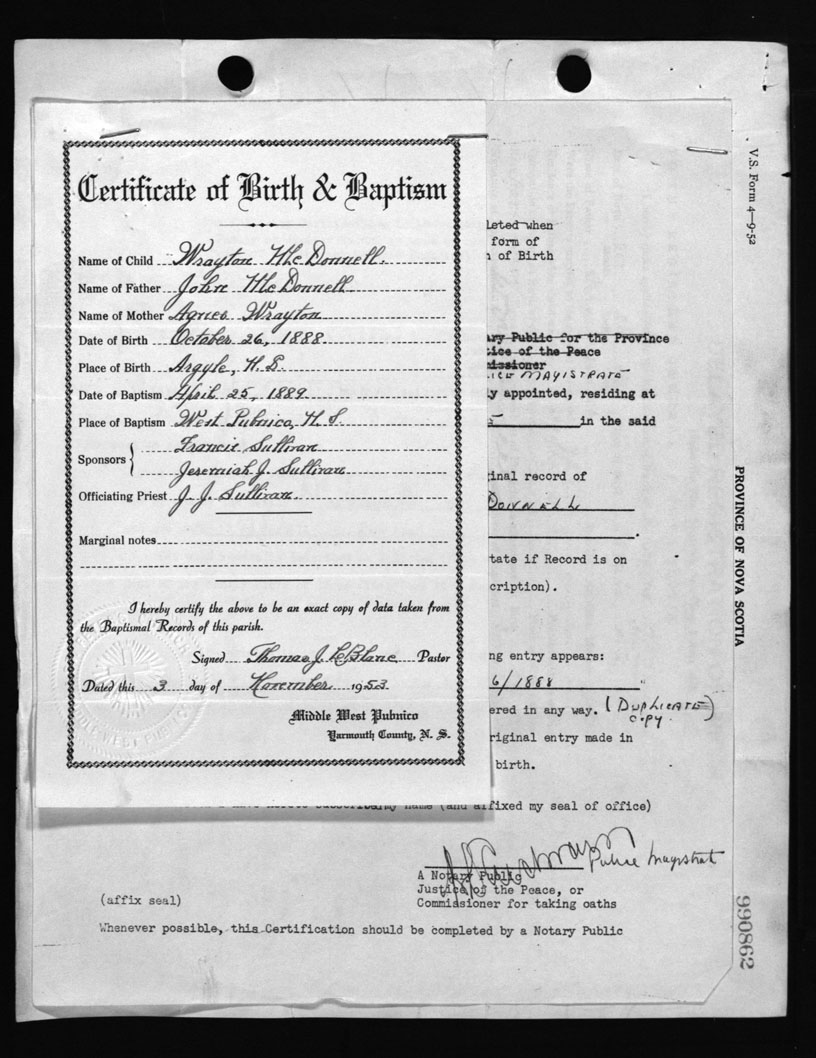 Certificate of Birth & Baptism
Name of Child Wrayton McDonnell.
Name of Father John McDonnell
Name of Mother Agnes Wrayton
Date of Birth October 26, 1888
Place of Birth Argyle, N.S.
Date of Baptism April 25, 1889
Place of Baptism West Pubnico, N.S.
Sponsors { Francis Sullivan
Jeremiah J. Sullivan
Officiating Priest J. J. Sullivan
Marginal notes
I hereby certify the above to be an exact copy of data taken from
the Baptismal Records of this parish.
Signed Thomas J. LeBlanc Pastor
Dated this 3 day of November 1953
Middle West Pubnico
Yarmouth County, N. S.
leted when
form of
n of Birth
ary Public for the Province
tice of the Peace
missioner
MAGISTRATE
ly appointed, residing at
in the said
inal record of
DONNELL
tate if Record is on
cription).
ng entry appears:
6/1888
ered in any way. (DUPLICATE
COPY.)
riginal entry made in
birth.
name (and affixed my seal of office)
Police Magistrate
A Notary Public
Justice of the Peace, or
(affix seal) Commissioner for taking oaths
Whenever possible, this Certification should be completed by a Notary Public
V.S. Form 4—9-52
PROVINCE OF NOVA SCOTIA
990862